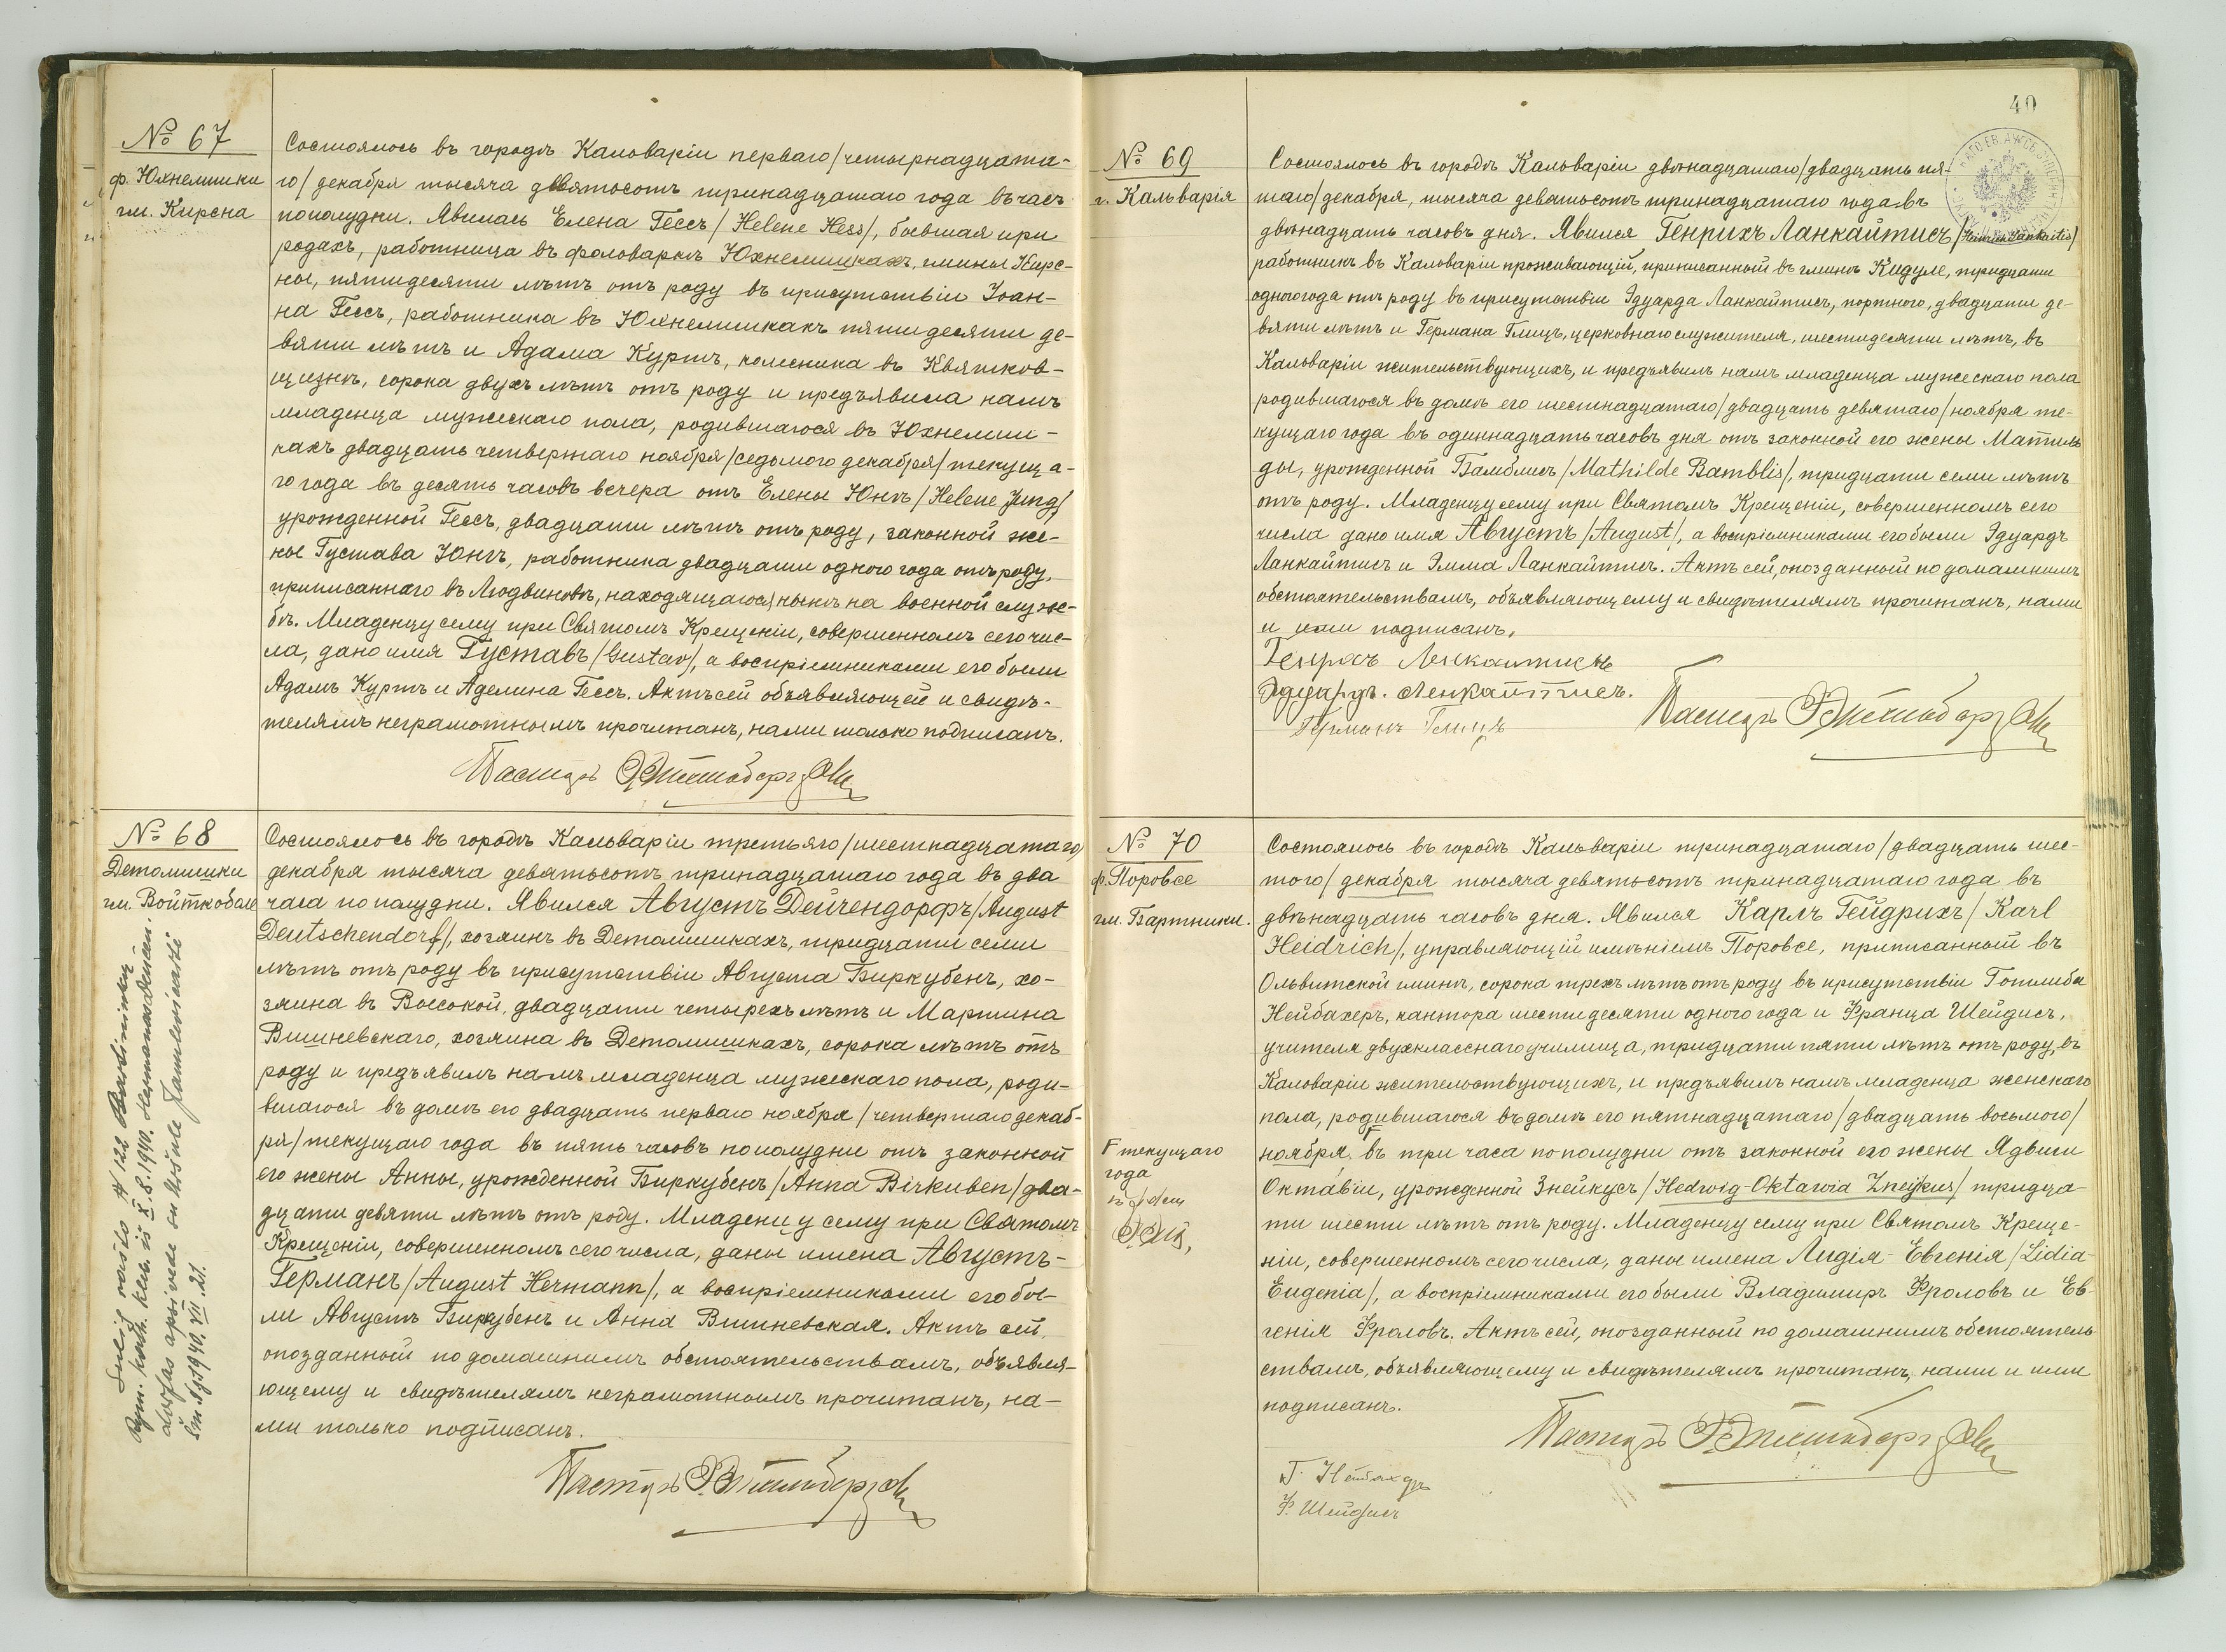 № 67
ф. Юхнелишки
гм. Кирсна
Состоялось въ городѣ Кальваріи перваго/четырнадцата-
го/ декабря тысяча девятьсотъ тринадцатаго года въ часъ
пополудни. Явилась Елена Гессъ/ Helene Hess/, бывшая при
родахъ, работница въ фольваркѣ Юхнелишкахъ, гмины Кирс-
ны, пятидесяти лѣтъ отъ роду въ присутствіи Іоан-
на Гессъ, работника въ Юхнелишкахъ пятидесяти де-
вяти лѣтъ и Адама Куртъ, колесника въ Квятков-
щизнѣ, сорока двухъ лѣтъ отъ роду и предъявила намъ
младенца мужескаго пола, родившагося въ Юхнелиш-
кахъ двадцать четвертаго ноября/седьмого декабря/текуща-
го года въ десять часовъ вечера отъ Елены Юнгъ/Helene Jung/
урожденной Гессъ, двадцати лѣтъ отъ роду, законной же-
ны Густава Юнгъ, работника двадцати одного года отъ роду,
приписаннаго въ Людвиновѣ, находящагося нынѣ на военной служ-
бѣ. Младенцу сему при Святомъ Крещеніи, совершенномъ сего чис-
ла, дано имя Густавъ/Gustav/, а воспріемниками его были
Адамъ Куртъ и Аделина Гессъ. Актъ сей объявляющей и свидѣ-
телямъ неграмотнымъ прочитанъ, нами только подписанъ.
Пасторъ
№ 68
Детомишки
гм. Войткобале
Состоялось въ городѣ Кальваріи третьяго/шестнадцатаго/
декабря тысяча девятьсотъ тринадцатаго года въ два
часа пополудни. Явился Августъ Дейчендорфъ/August
Deutschendorf/, хозяинъ въ Детомишкахъ, тридцати семи
лѣтъ отъ роду въ присутствіи Августа Биркубенъ, хо-
зяина въ Высокой, двадцати четырехъ лѣтъ и Мартина
Вишневскаго, хозяина въ Детомишкахъ, сорока лѣтъ отъ
роду и предъявилъ намъ младенца мужескаго пола, роди-
вшагося въ домѣ его двадцать перваго ноября/четвертаго декаб-
ря/текущаго года въ пять часовъ пополудни отъ законной
его жены Анны, урожденной Биркубенъ/Anna Birkuben/два-
дцати девяти лѣтъ отъ роду. Младенцу сему при Святомъ
Крещеніи, совершенномъ сего числа, даны имена Августъ-
Германъ/August Hermann/, а воспріемниками его бы-
ли Августъ Биркубенъ и Анна Вишневская. Актъ сей,
опозданный по домашнимъ обстоятельствамъ, объявля-
ющему и свидѣтелямъ неграмотнымъ прочитанъ, на-
ми только подписанъ.
Пасторъ
40
№ 69
г. Кальварія
Состоялось въ городѣ Кальваріи двѣнадцатаго/двадцать пя-
таго/декабря, тысяча девятьсотъ тринадцатаго года въ
двѣнадцать часовъ дня. Явился Генрихъ Ланкайтисъ/Heinrich Lankaitis/
работникъ въ Кальваріи проживающій, приписанный въ гминѣ Кидуле, тридцати
одного года отъ роду въ присутствіи Эдуарда Ланкайтисъ, портного, двадцати де-
вяти лѣтъ и Германа Глицъ, церковнаго служителя, шестидесяти лѣтъ, въ
Кальваріи жительствующихъ, и предъявилъ намъ младенца мужескаго пола
родившагося въ домѣ его шестнадцатаго/двадцать девятаго/ноября те-
кущаго года въ одиннадцать часовъ дня отъ законной его жены Матиль
ды, урожденной Бамблисъ/Mathilde Bamblis/, тридцати семи лѣтъ
отъ роду. Младенцу сему при Святомъ Крещеніи, совершенномъ сего
числа дано имя Августъ/August/, а воспріемниками его были Эдуардъ
Ланкайтисъ и Эмма Ланкайтисъ. Актъ сей, опозданный по домашнимъ
обстоятельствамъ, объявляющему и свидѣтелямъ прочитанъ, нами
и ими подписанъ.
Генрихъ Ленкаитисъ
Эдуардъ. Ленкайтисъ.
Германъ Глицъ
Пасторъ
№ 70
ф. Поровсе
гм. Бартники.
Состоялось въ городѣ Кальваріи тринадцатаго/двадцать шес-
того/декабря тысяча девятьсотъ тринадцатаго года въ
двѣнадцать часовъ дня. Явился Карлъ Гейдрихъ/Karl
Heidrich/, управляющій имѣніемъ Поровсе, приписанный въ
Ольвитской гминѣ, сорока трехъ лѣтъ отъ роду въ присутствіи Готлиба
Нейбахеръ, кантора шестидесяти одного года и Франца Шейдисъ,
учителя двухкласснаго училища, тридцати пяти лѣтъ отъ роду, въ
Кальваріи жительствующихъ, и предъявилъ намъ младенца женскаго
пола, родившагося въ домѣ его пятнадцатаго/двадцать восьмого/
ноября въ три часа пополудни отъ законной его жены Ядвиги
Октавіи, урожденной Знейкусъ/Hedwig-Oktawia Zneijkus/ тридца-
ти шести лѣтъ отъ роду. Младенцу сему при Святомъ Креще-
ніи, совершенномъ сего числа, даны имена Лидія-Евгенія/Lidia-
Eugenia/, а воспріемниками его были Владимиръ Фроловъ и Ев-
генія Фроловъ. Актъ сей, опозданный по домашнимъ обстоятель
ствамъ, объявляющему и свидѣтелямъ прочитанъ, нами и ими
подписанъ.
текущаго
года
Пасторъ
Г. Нейбахеръ
Ф. Шейдисъ